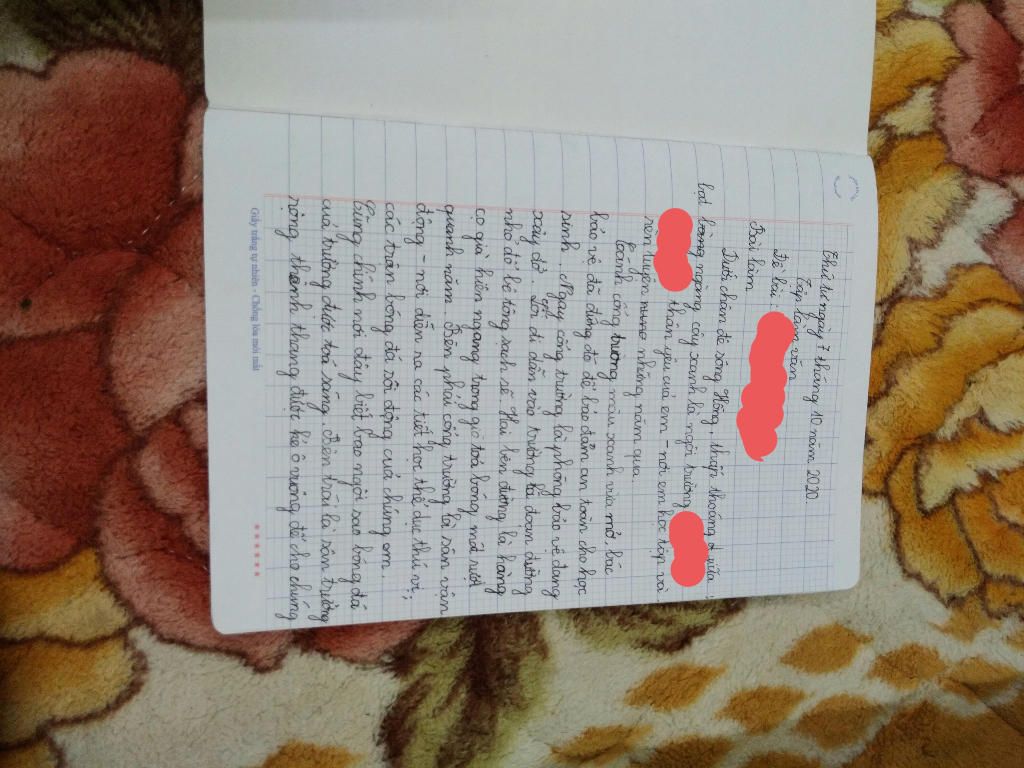 Thứ tư ngày 7 tháng 10 năm 2020.
Tập làm văn
Đề bài :
Bài làm
Dưới chân đê sông Hồng, thấp thoáng giữa
bạt hàng ngàng cây xanh là ngôi trường
thân yêu của em - nơi em học tập và
rèn luyện những năm qua.
Cánh cổng trường màu xanh vừa mở, bác
bảo vệ đã đứng đó để bảo đảm an toàn cho học
sinh. Ngay cổng trường là phòng bảo vệ đang
xây dở. Lối đi dẫn vào trường là đoạn đường
nhỏ đổ bê tông sạch sẽ. Hai bên đường là hàng
cọ già hiên ngang trong gió toả bóng mát rượi
quanh năm. Bên phải cổng trường là sân vận
động - nơi diễn ra các tiết học thể dục thú vị;
các trận bóng đá sôi động của chúng em.
Cũng chính nơi đây biết bao ngôi sao bóng đá
của trường được toả sáng. Bên trái là sân trường
rộng thênh thang được kẻ ô vuông để cho chúng
Giấy trắng tự nhiên - Chống lóa mỏi mắt